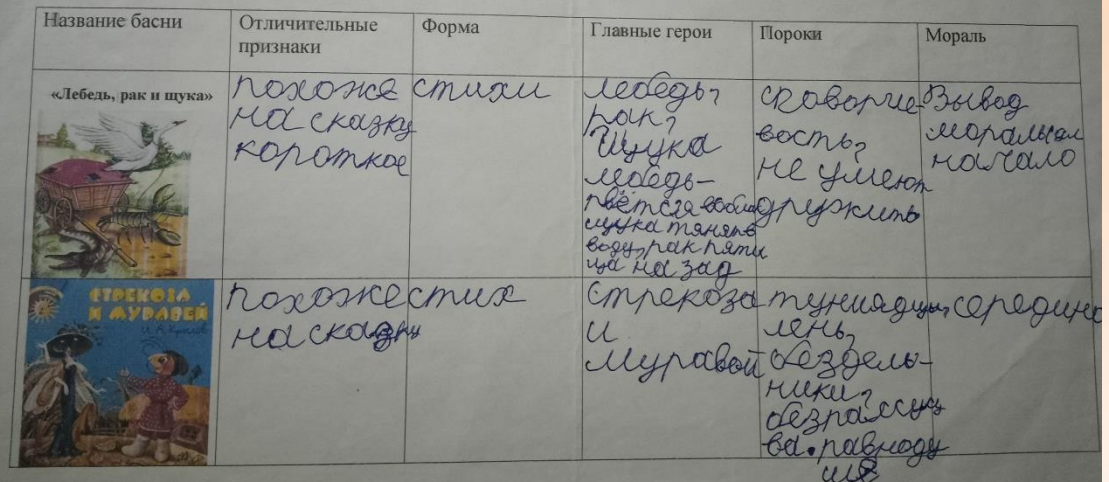 Название басни
Отличительные
признаки
Форма
Главные герои
Пороки
Мораль
«Лебедь, рак и щука»
похоже
на сказку
короткое
стихи
лебедь,
рак,
щука
лебедь-
рвётся
щука тянет в
воду, рак пяти
ца назад
сговорчи-
вость,
не умеют
дружить
Вывод
мораль
начало
СТРЕКОЗА
И МУРАВЕЙ
И.А.Крылов
похоже
на сказку
стих
стрекоза
и
муравей
лень,
бездель-
ники,
равноду
шие
середина